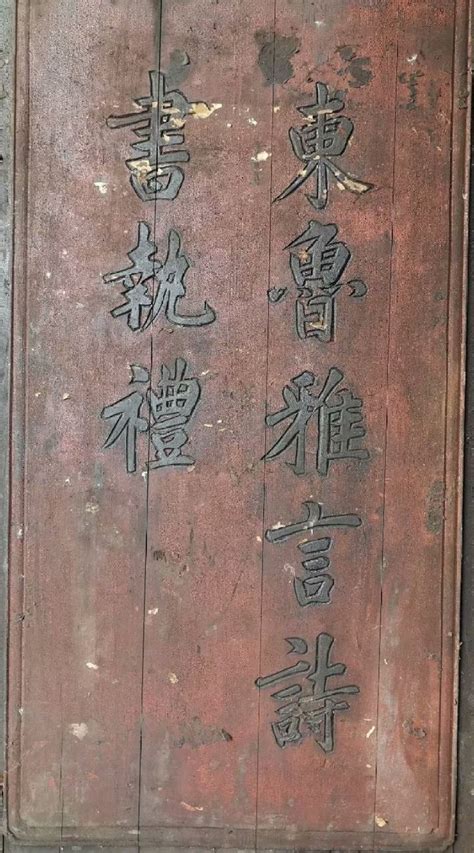 東魯雅言詩
書執禮